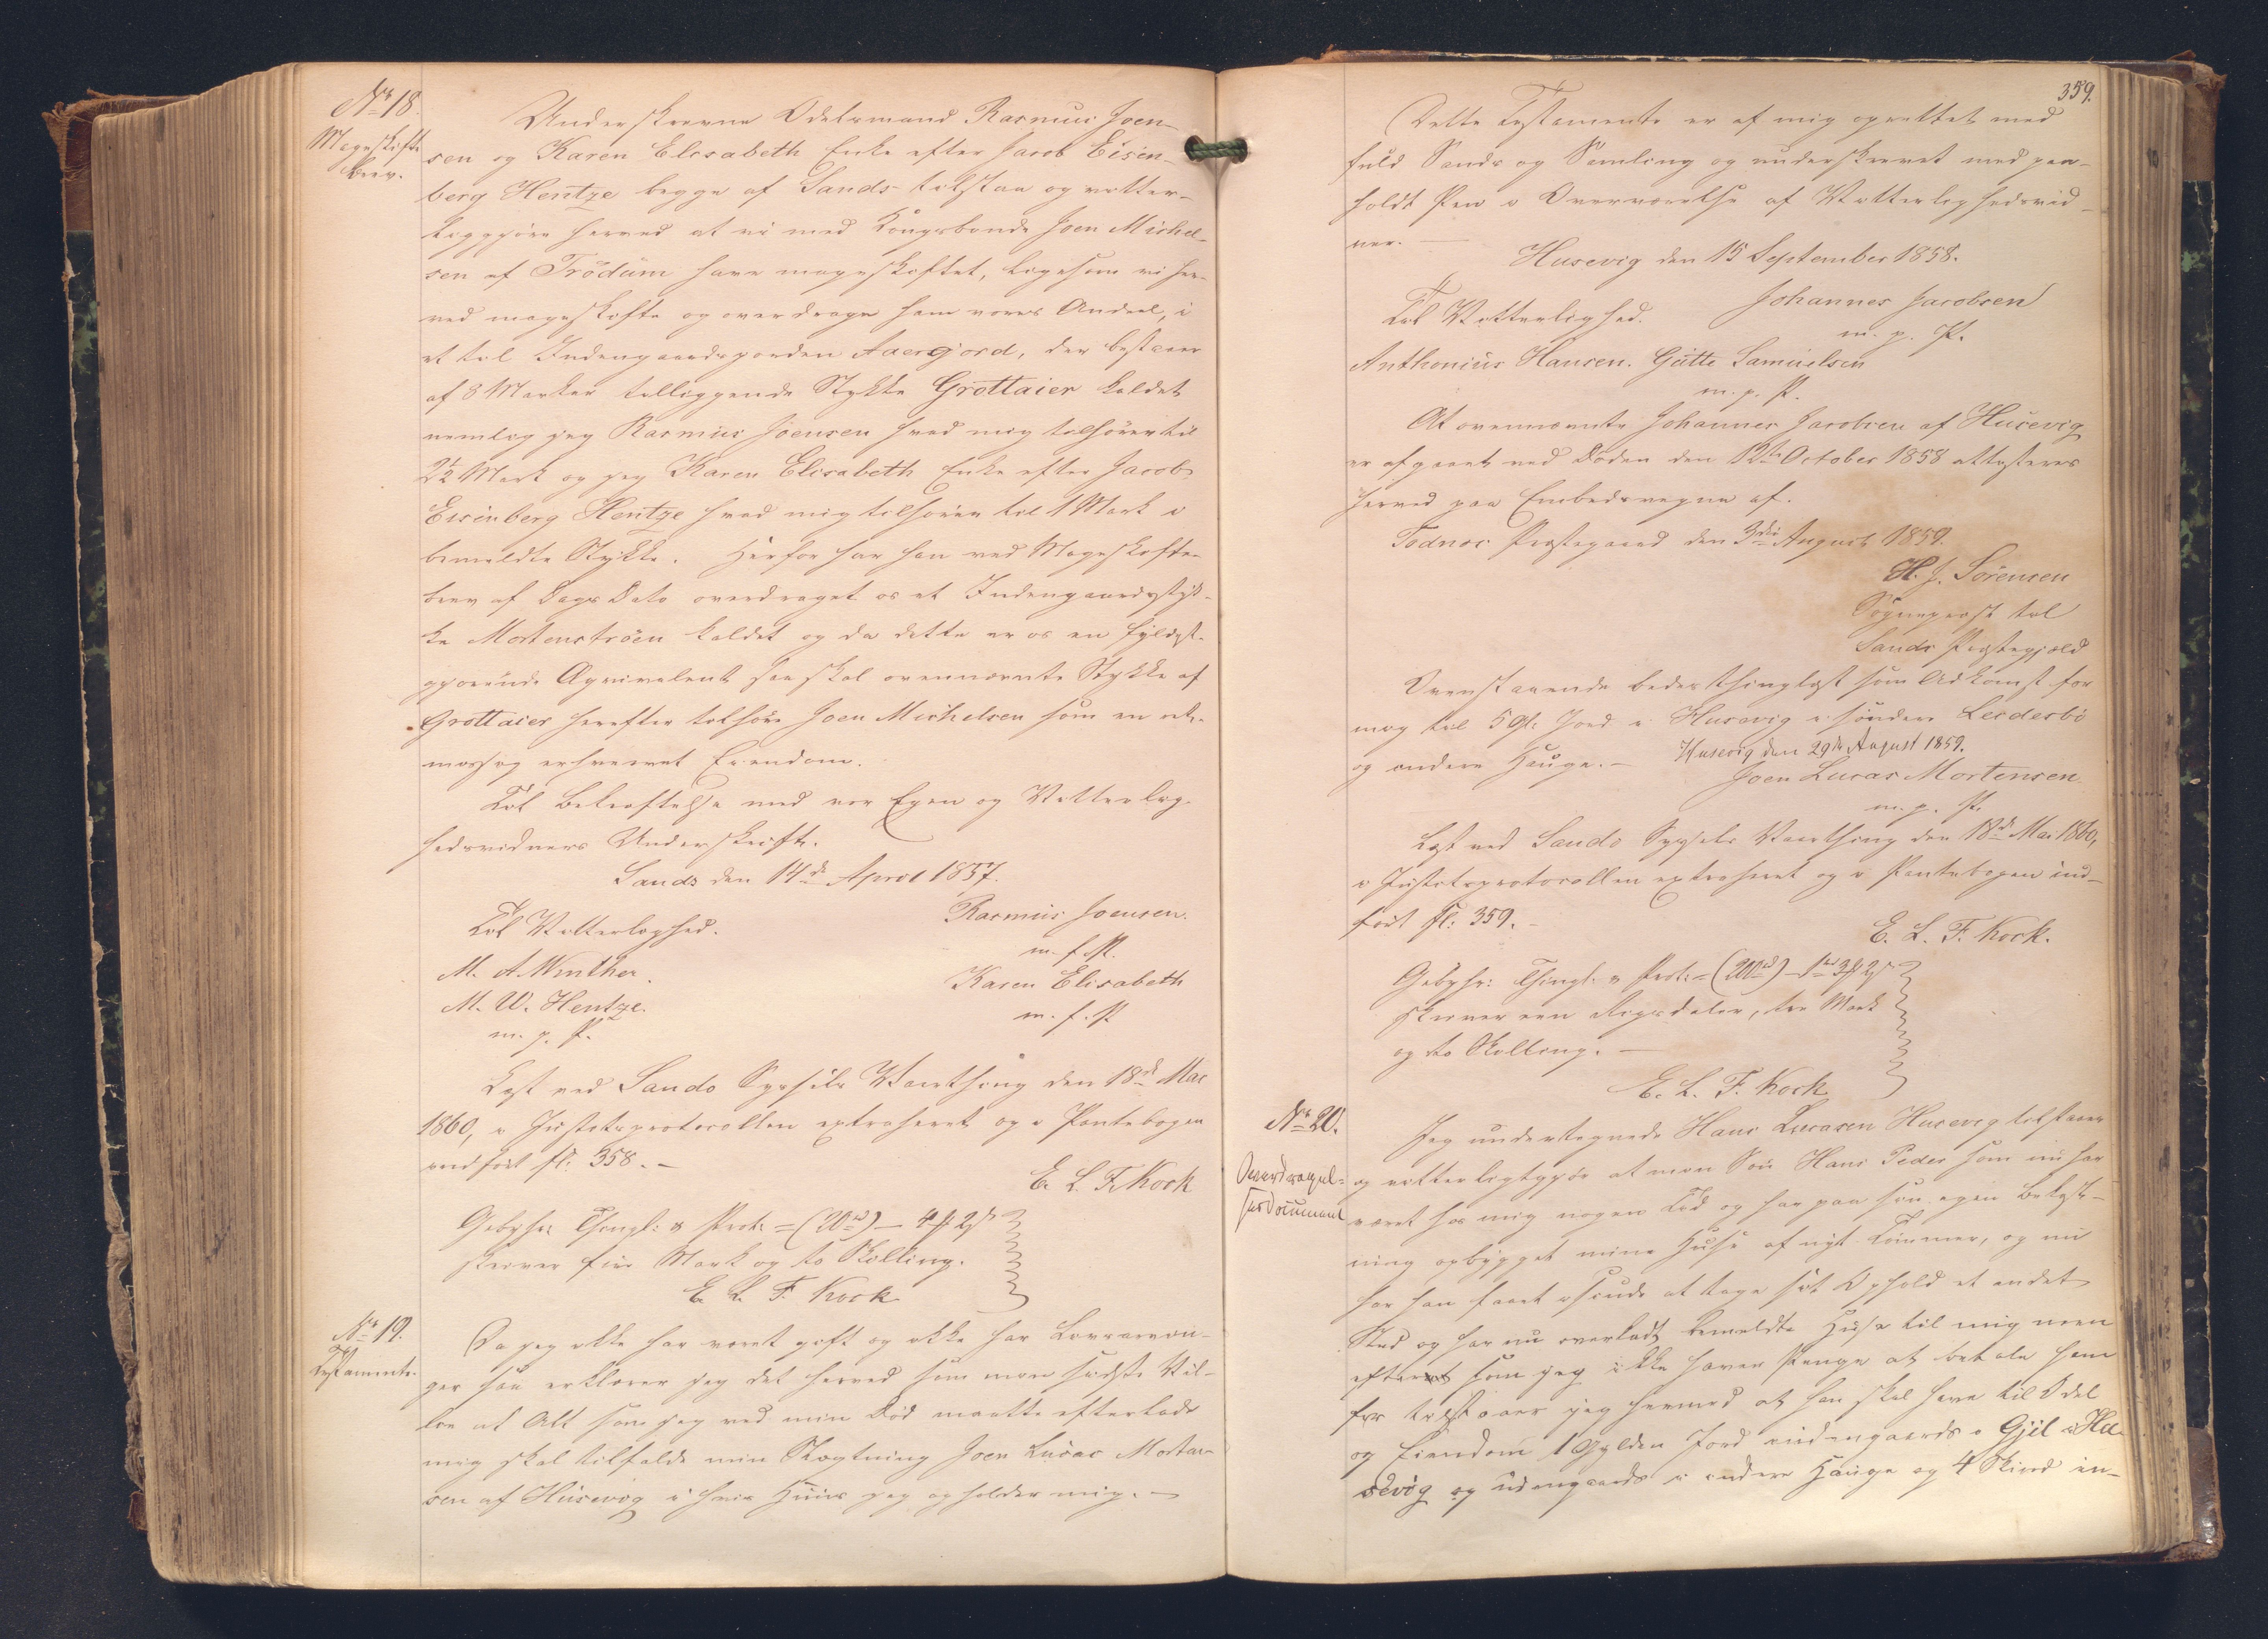 No 18.
Mageskifte
brev.
Underskrevne Odelsmand Rasmus Joen-
sen og Karen Elisabeth Enke efter Jacob Eisen-
berg Hentze begge af Sands tilstaa og vitter-
liggjøre herved at vi med Kongsbonde Joen Michel-
sen af Trödum have mageskiftet, ligesom vi her-
ved mageskifte og overdrage ham vores Andeel, i
et til Indengaardsjorden Aaergjord, der bestaaer
af 3 Marker tilliggende Stykke Grottaier kaldet
nemlig jeg Rasmus Joensen hvad mig tilhörer til
2½ Mark og jeg Karen Elisabeth Enke efter Jacob
Eisenberg Hentze hvad mig tilhörer til 1 Mark i
bemeldte Stykke. Herfor har han ved Mageskifte-
brev af Dags Dato overdraget os et Indengaardsstyk-
ke Mortenströen kaldet og da dette er os en fyldest-
gjörende Æqvivalent saa skal ovennævnte Stykke af
Grottaier herefter tilhöre Joen Michelsen som en ret-
mæssig erhvervet Eiendom.
Til Bekræftelse med vor Egen og Vitterlig-
hedsvidners Underskrift.
Sands den 14de April 1857.
Til Vitterlighed.
Rasmus Joensen.
m. f. P.
M. A. Winther.
Karen Elisabeth
M. W. Hentze.
m. f. P.
m. p. P.
Læst ved Sandö Syssels Vaarthing den 18de Mai
1860, i Justitsprotocollen extraheret og i Pantebogen
indfört fl: 358. -
E. L. F. Kock
Gebyhr: Thingl: & Prot: = (20 rd) - 4 # 2 s
skriver fire Mark og to Skilling.
E. L. F. Kock
No 19.
Testamente.
Da jeg ikke har været gift og ikke har Livsarvin-
ger saa erklærer jeg det herved som min sidste Vil-
lie at Alt som jeg ved min Död maatte efterlade
mig skal tilfalde min Slægtning Joen Lucas Morten-
sen af Husevig i hvis Huus jeg opholder mig. -
359.
Dette Testamente er af mig oprettet med
fuld Sands og Samling og underskrevet med paa-
holdt Pen i Overværelse af Vitterlighedsvid-
ner. -
Husevig den 15 September 1858.
Til Vitterlighed.
Johannes Jacobsen
m. p. P.
Anthonius Hansen. Gutte Samuelsen
m. p. P.
At ovennævnte Johannes Jacobsen af Husevig
er afgaaet ved Döden den 12te October 1858 attesteres
herved paa Embedsvegne af.
Todnæs Præstegaard den 3die August 1859.
H. J. Sörensen
Sognepræst til
Sandö Præstegjæld
Ovenstaaende bedes thinglæst som Adkomst for
mig til 5 Gl: Jord i Husevig i söndre Leidesbö
og indere Hauge. - Husevig den 29de August 1859.
Joen Lucas Mortensen
m. p. P.
Læst ved Sandö Syssels Vaarthing den 18de Mai 1860,
i Justitsprotocollen extraheret og i Pantebogen ind-
fört fl: 359. -
E. L. F. Kock.
Gebyhr: Thingl: & Prot: = (200 rd) - 1 rd 3 # 2 s
skriver een Rigsdaler, tre Mark
og to Skilling. -
E. L. F. Kock
No 20.
Overdragel-
sesdocument
Jeg undertegnede Hans Lucasen Husevig tilstaaer
og vitterligtgjör at min Sön Hans Peder som nu har
været hos mig nogen Tid og har paa sin egen Bekost-
ning opbygget mine Huse af nyt Tömmer, og nu
har han faaet isinde at tage sit Ophold et andet
Sted og har nu overladt bemeldte Huse til mig men
efter som jeg ikke haver Penge at betale ham
for tilstaaer jeg hermed at han skal have til Odel
og Eiendom 1 Gylden Jord indengaards i Gjil i Hu-
sevig og udengaards i indere Hauge og 4 Skind in-